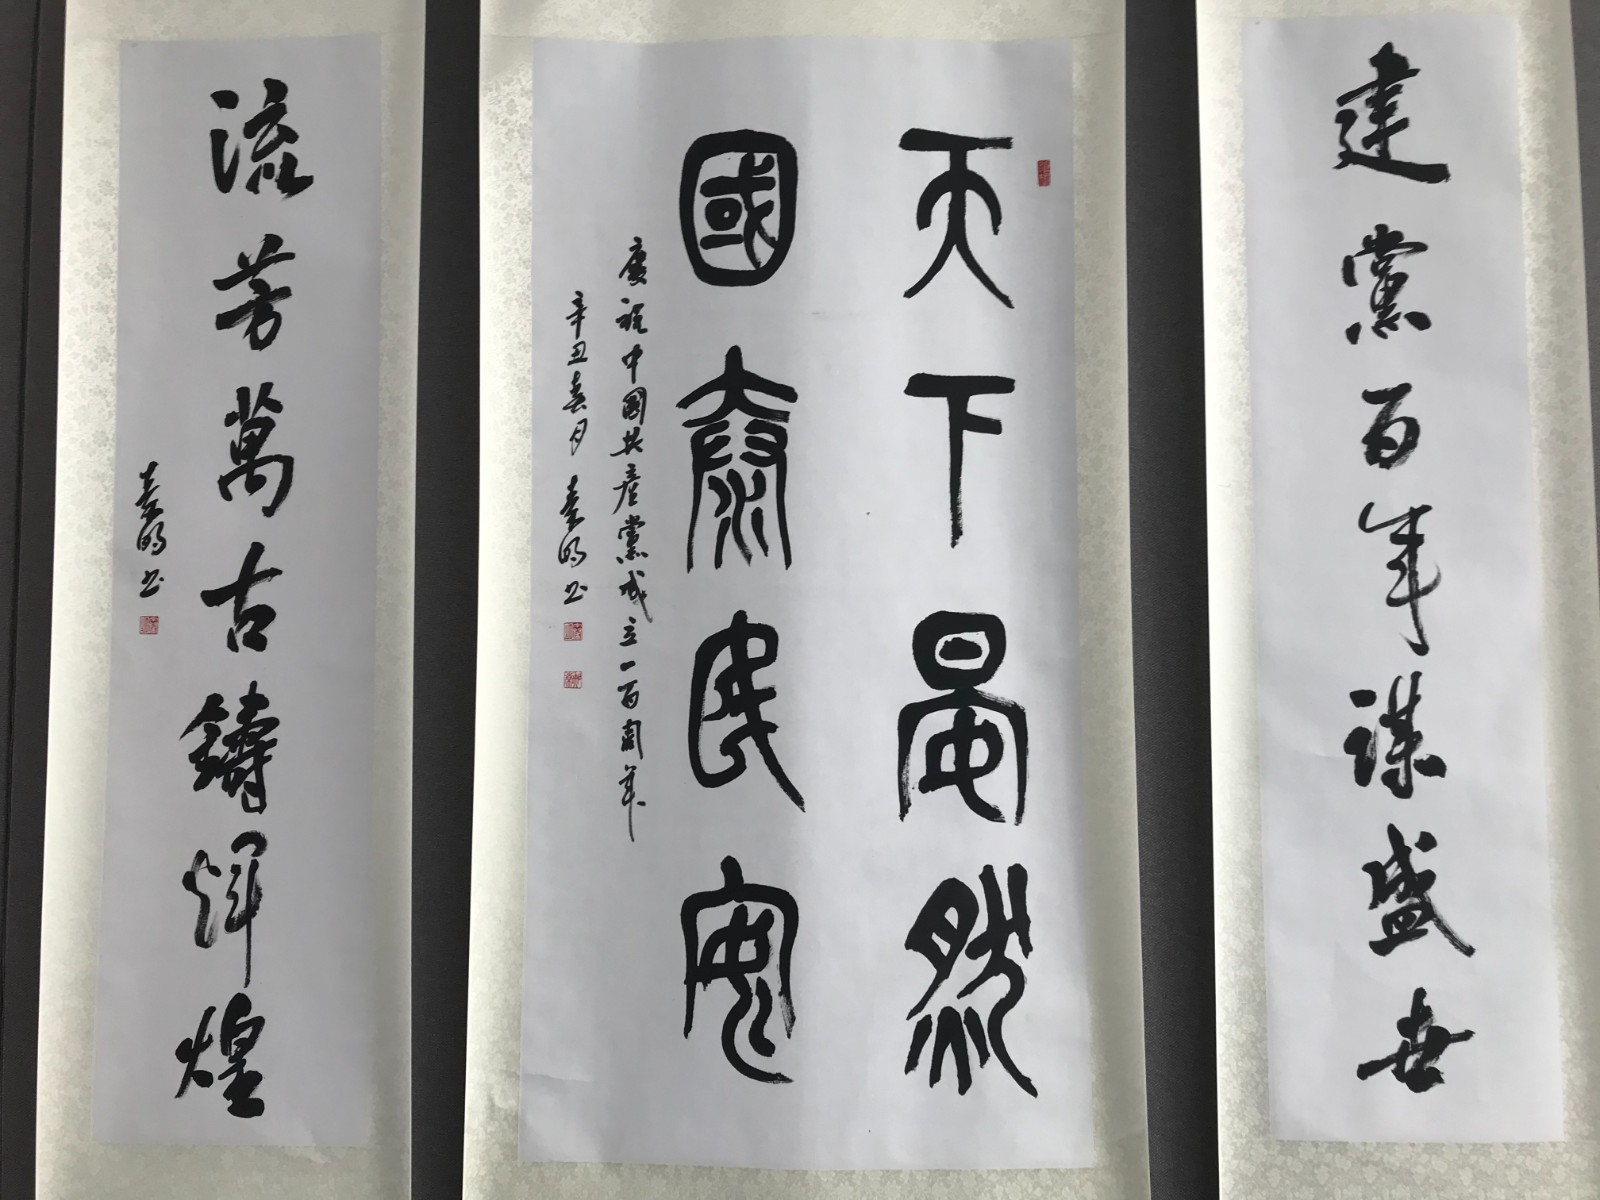 建黨百年謀盛世
天下晏然
國泰民安
慶祝中國共產黨成立一百周年
辛丑春月 明书
流芳萬古鑄煇煌
明书